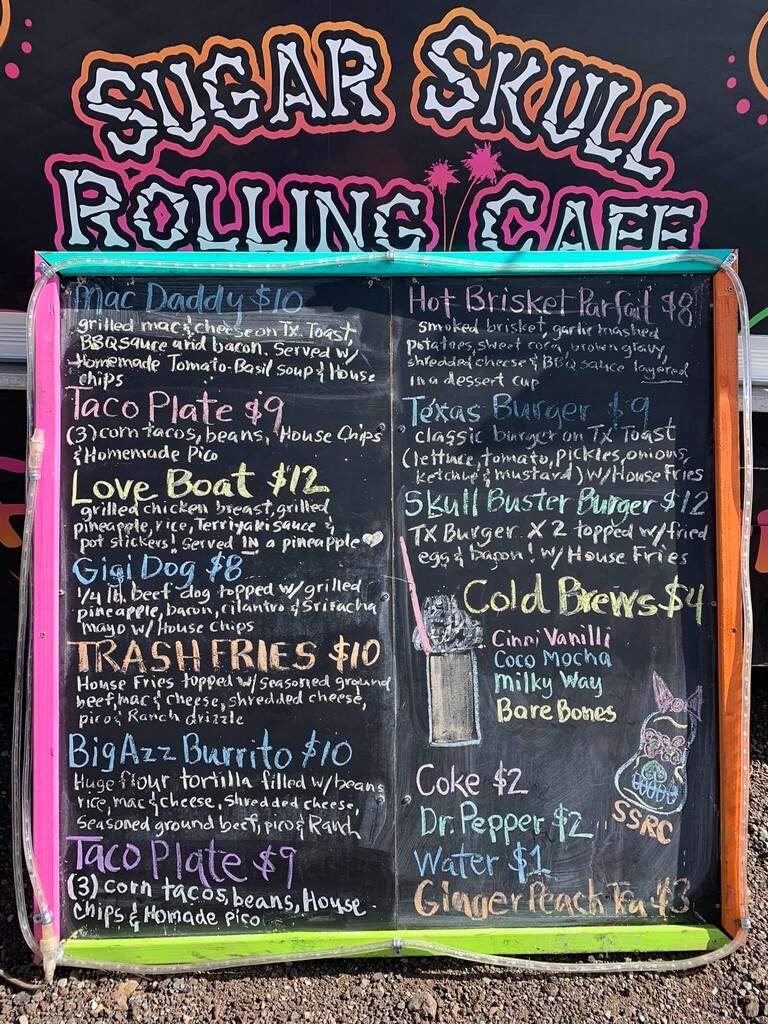 SUGAR SKULL
ROLLING CAFE
Mac Daddy $10
grilled mac & cheese on TX. Toast,
BBQ sauce and bacon. Served w/
Homemade Tomato-Basil soup & House
chips
Taco Plate $9
(3) corn tacos, beans, House Chips
& Homemade Pico
Love Boat $12
grilled chicken breast, grilled
pineapple, rice, Terriyaki sauce &
pot stickers! Served IN a pineapple
Gigi Dog $8
1/4 lb. beef dog topped w/ grilled
pineapple, bacon, cilantro & Sriracha
mayo w/ House Chips
TRASH FRIES $10
House Fries topped w/ seasoned ground
beef, mac & cheese, shredded cheese,
pico & Ranch drizzle
Big Azz Burrito $10
Huge flour tortilla filled w/ beans
rice, mac & cheese, shredded cheese,
seasoned ground beef, pico & Ranch
Taco Plate $9
(3) corn tacos, beans, House
chips & Homade Pico
Hot Brisket Parfait $8
smoked brisket, garlic mashed
potatoes, sweet corn, brown gravy,
shredded cheese & BBQ sauce layered
in a dessert cup
Texas Burger $9
classic burger on TX Toast
(lettuce, tomato, pickles, onions,
ketchup & mustard) w/ House Fries
Skull Buster Burger $12
TX Burger X 2 topped w/ fried
egg & bacon! w/ House Fries
Cold Brews $4
Cinni Vanilli
Coco Mocha
Milky Way
Bare Bones
SSRC
Coke $2
Dr. Pepper $2
Water $1
Ginger Peach Tea $3